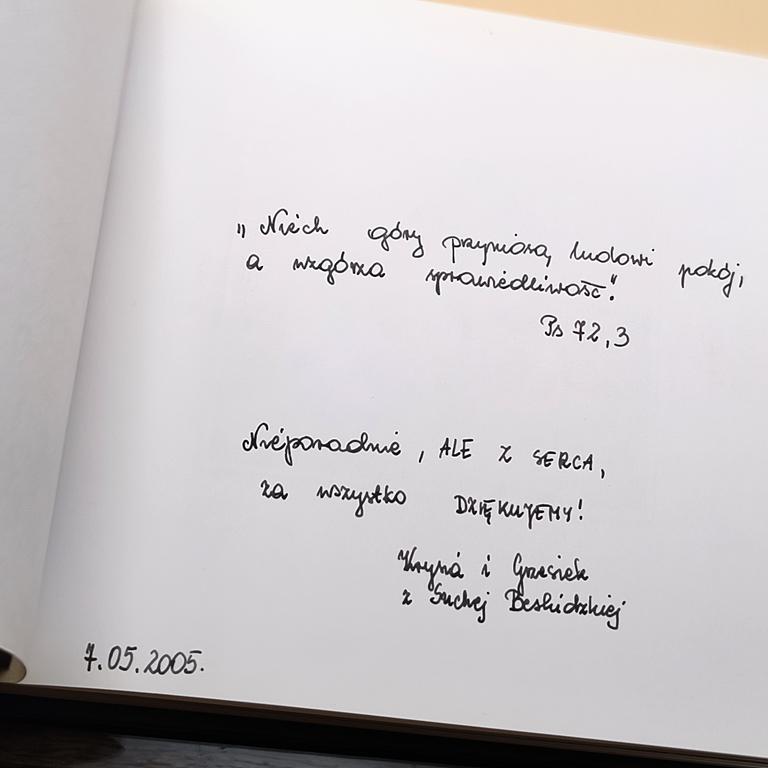 „Niech góry przyniosą ludowi pokój,
a wzgórza sprawiedliwość”.
Ps 72,3
Nieporadnie, ALE Z SERCA,
za wszystko DZIĘKUJEMY!
i Grzesiek
z Suchej Beskidzkiej
7.05.2005.